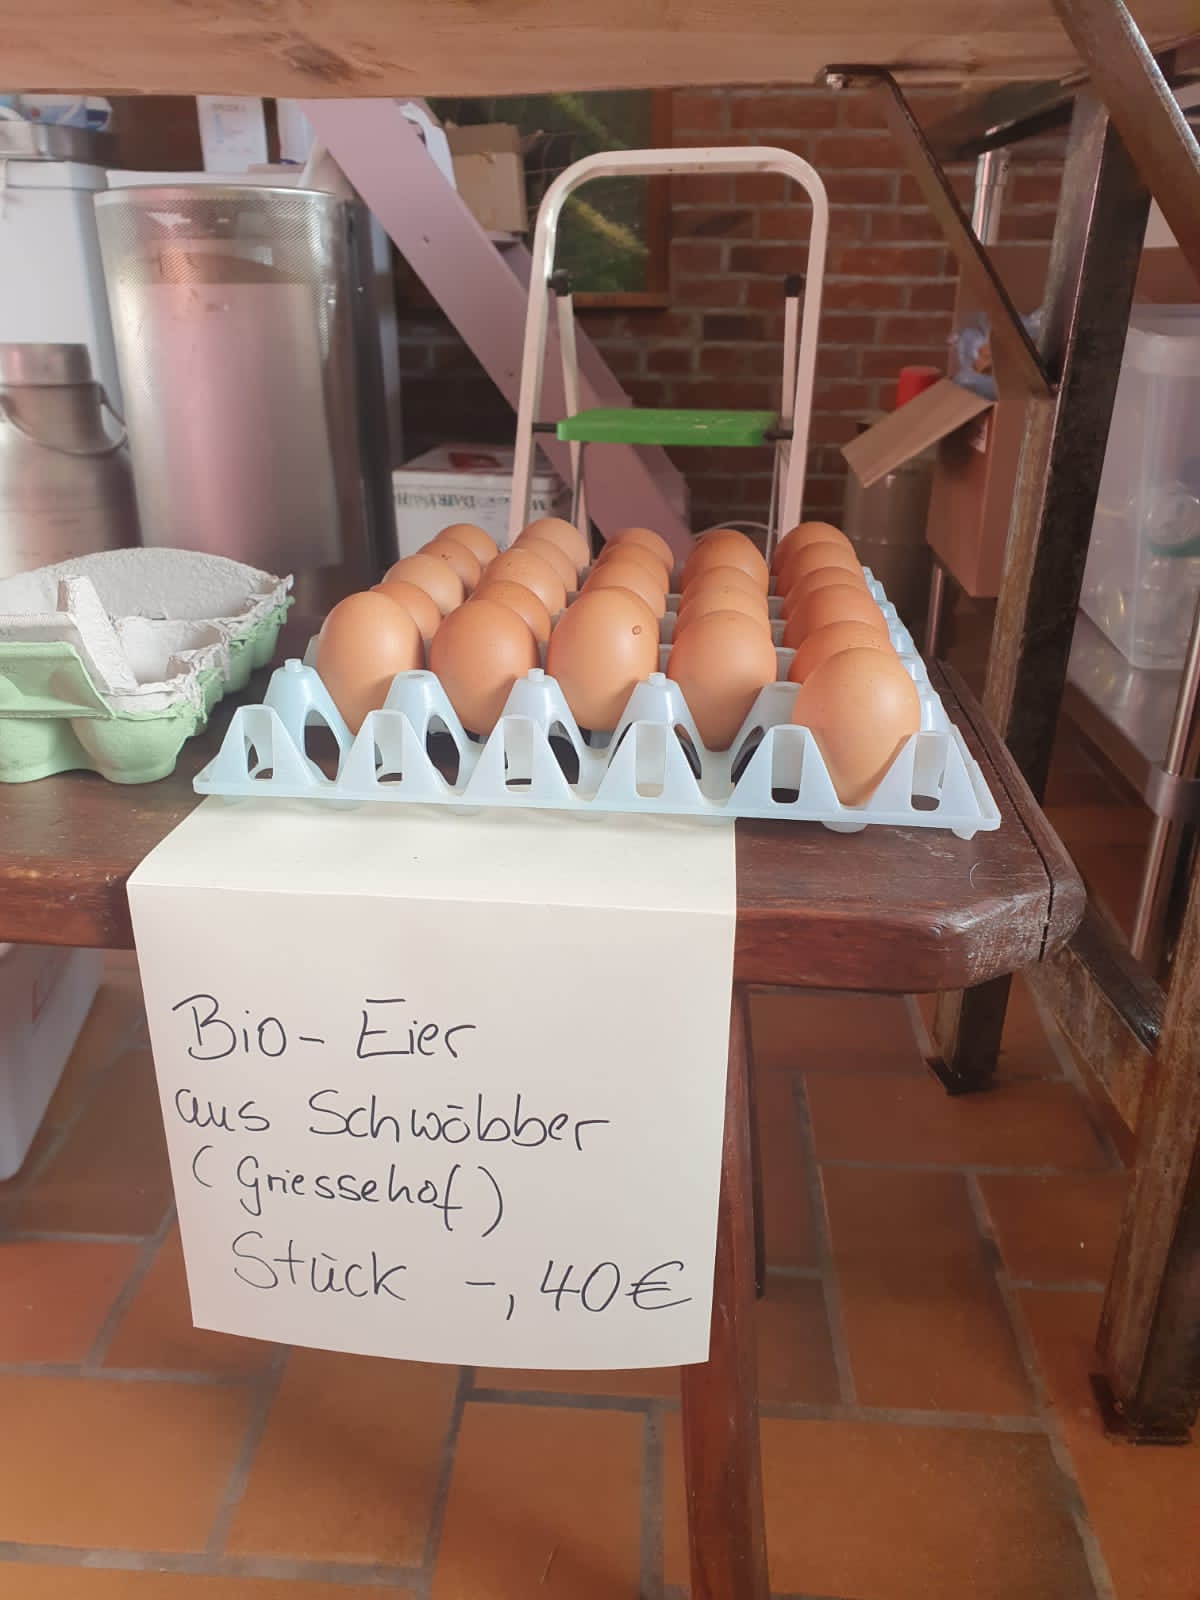 Bio- Eier
aus Schwöbber
(Griessehof)
Stück -,40€